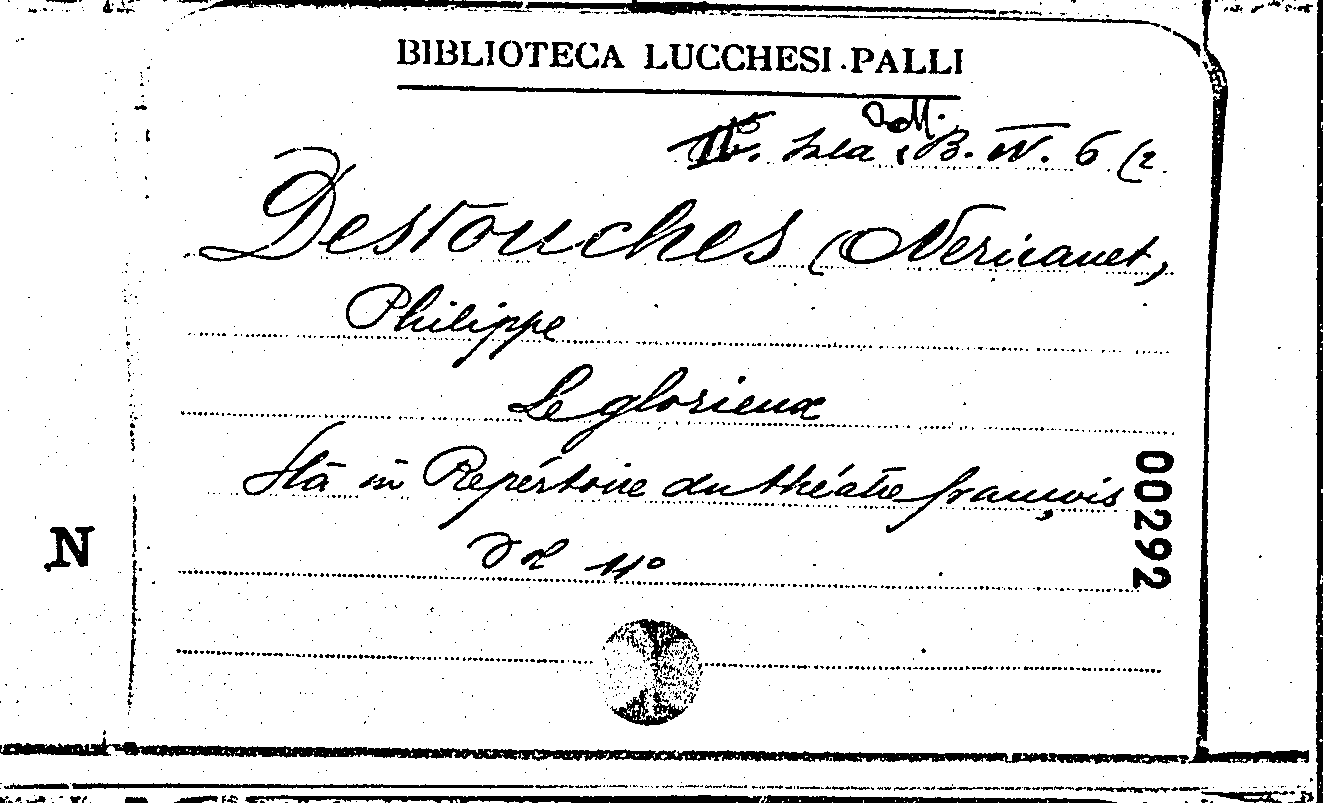 BIBLIOTECA LUCCHESI-PALLI
Sala B. IV. 6 (2
Destouches (Nericauet,
Philippe
Le glorieux
Sta in Repértoire du théatre françois
Vol 11°
00292
N